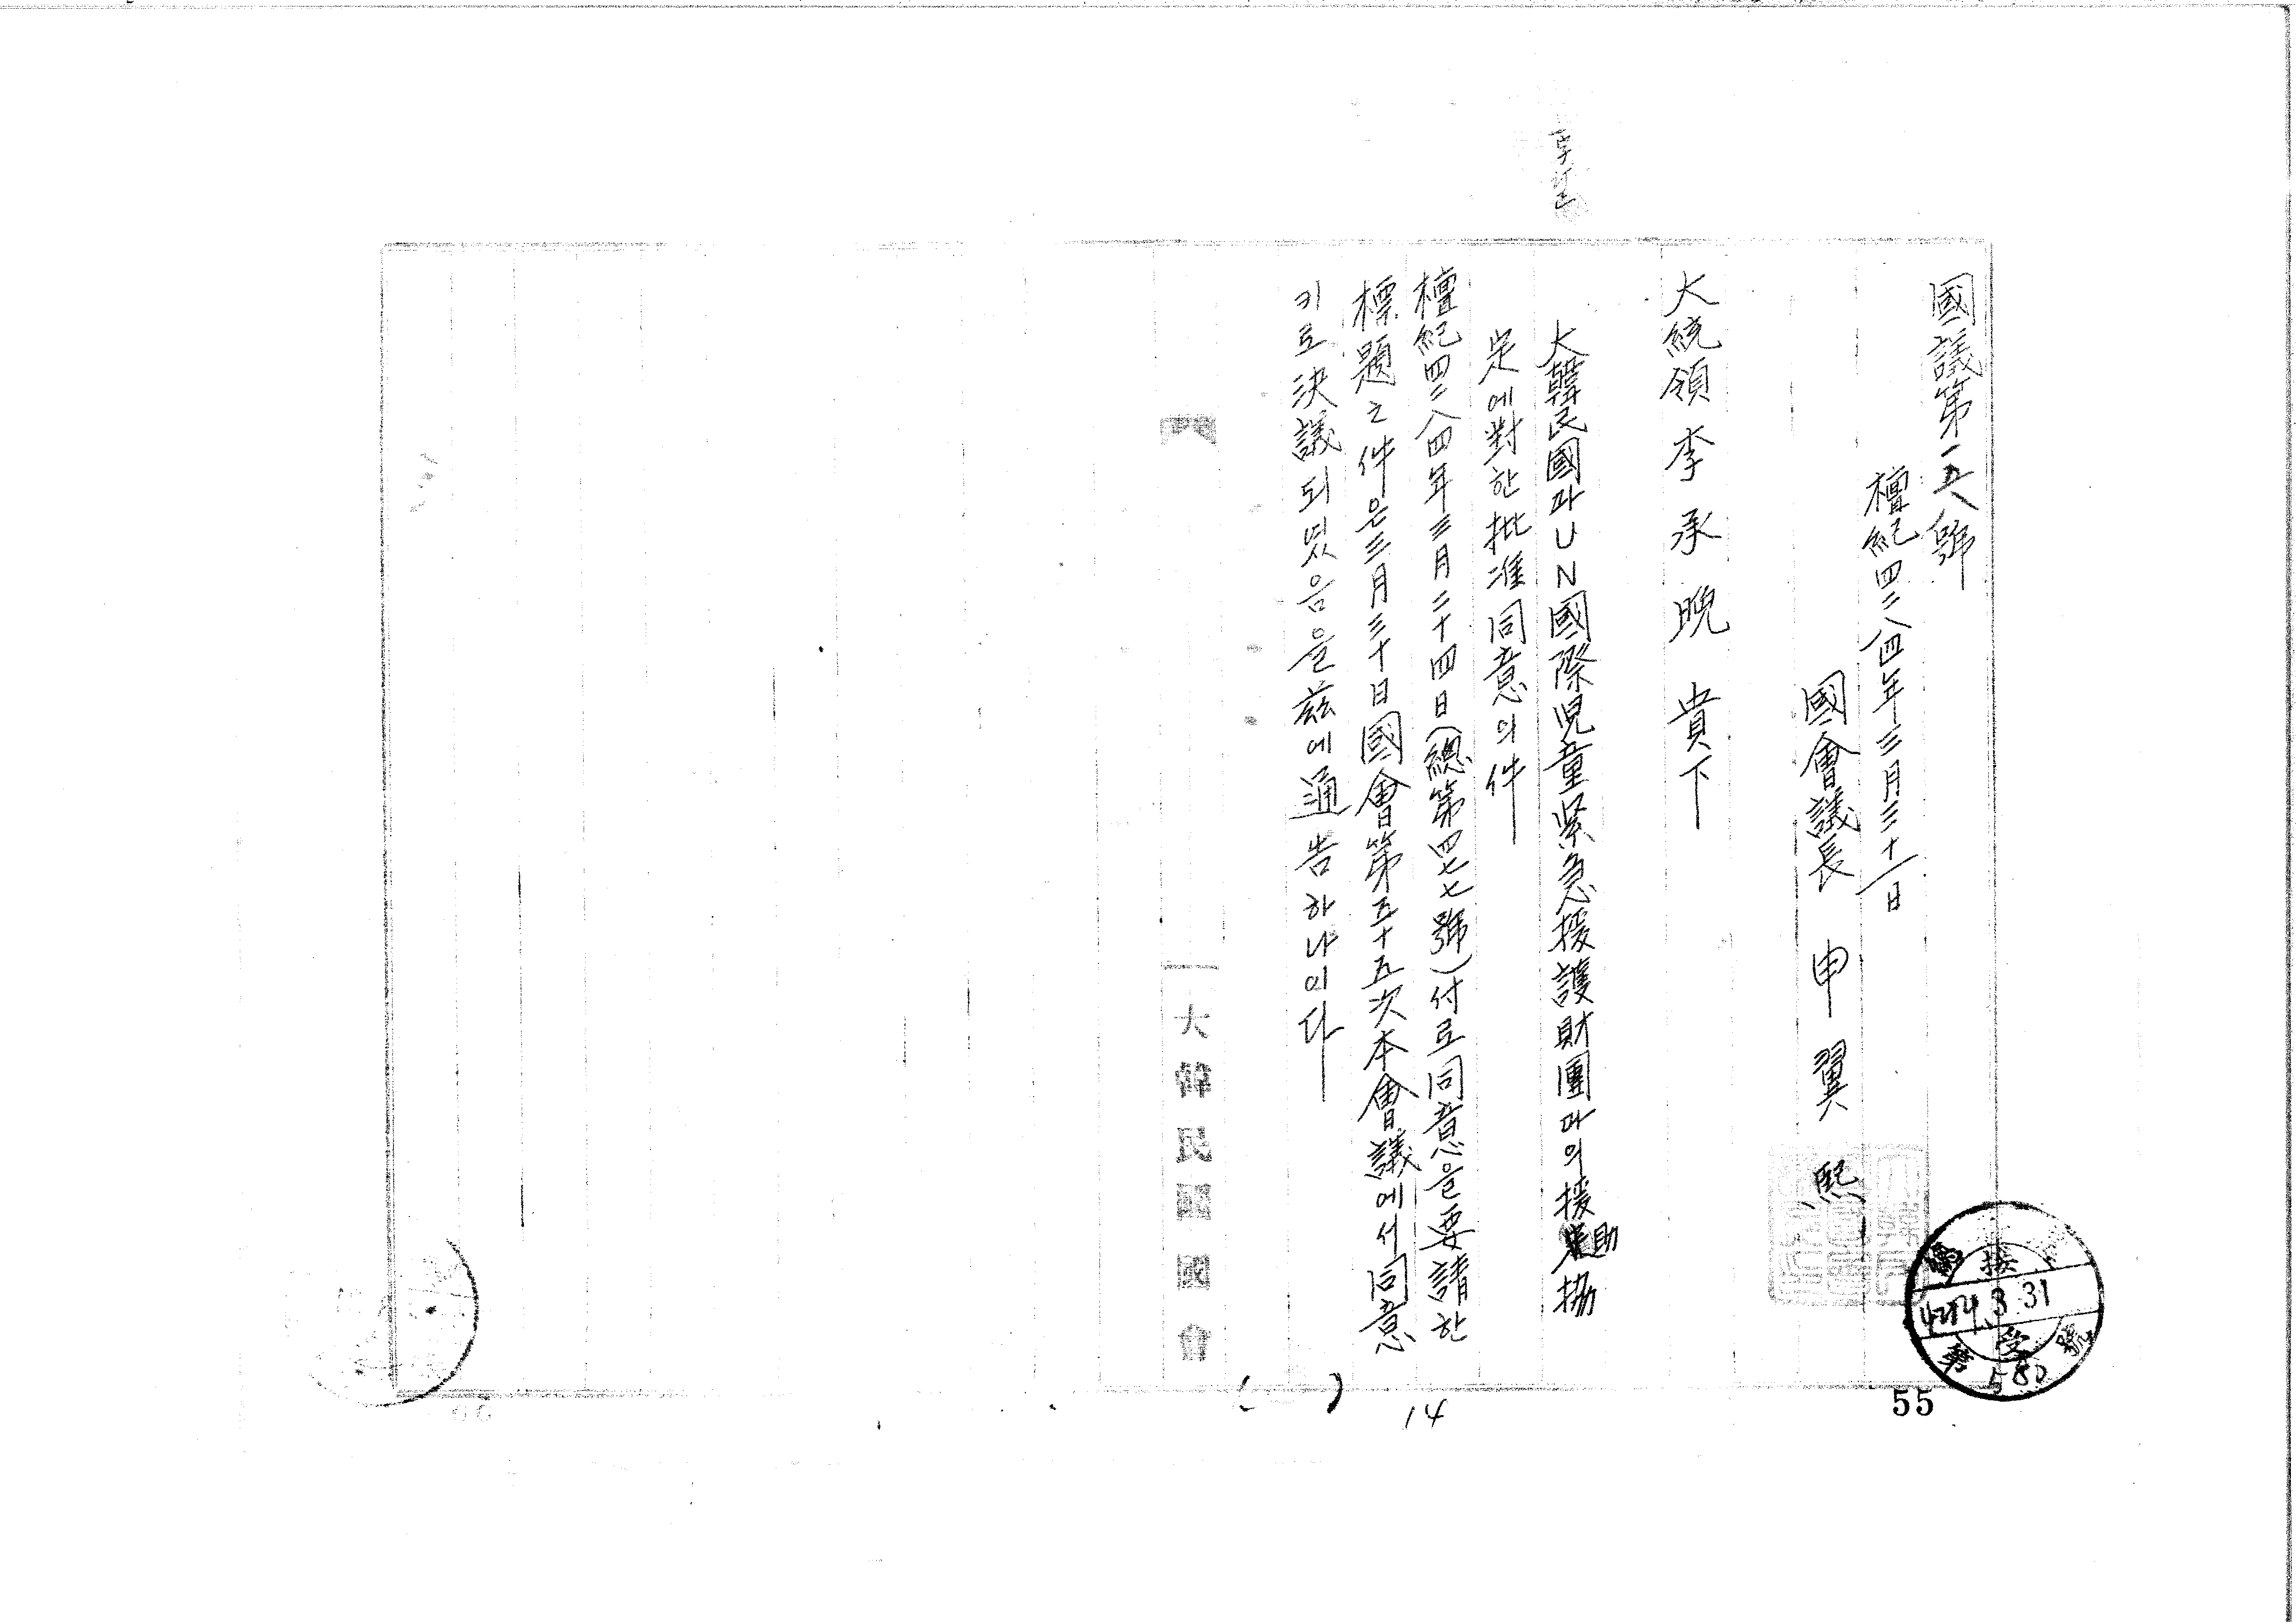 國議第一五八號
檀紀四二八四年三月三十一日
國會議長 申翼熙
大統領 李承晩 貴下
大韓民國과UN國際児童緊急援護財團과의援助協
定에對한批准同意의件
檀紀四二八四年三月二十四日(總第四七七號)付로同意을要請한
標題之件은三月三十日國會第五十五次本會議에서同意
키로決議되였음을玆에通告하나이다
大韓民國國會
接
4284.3.31
受
第580號
14
55